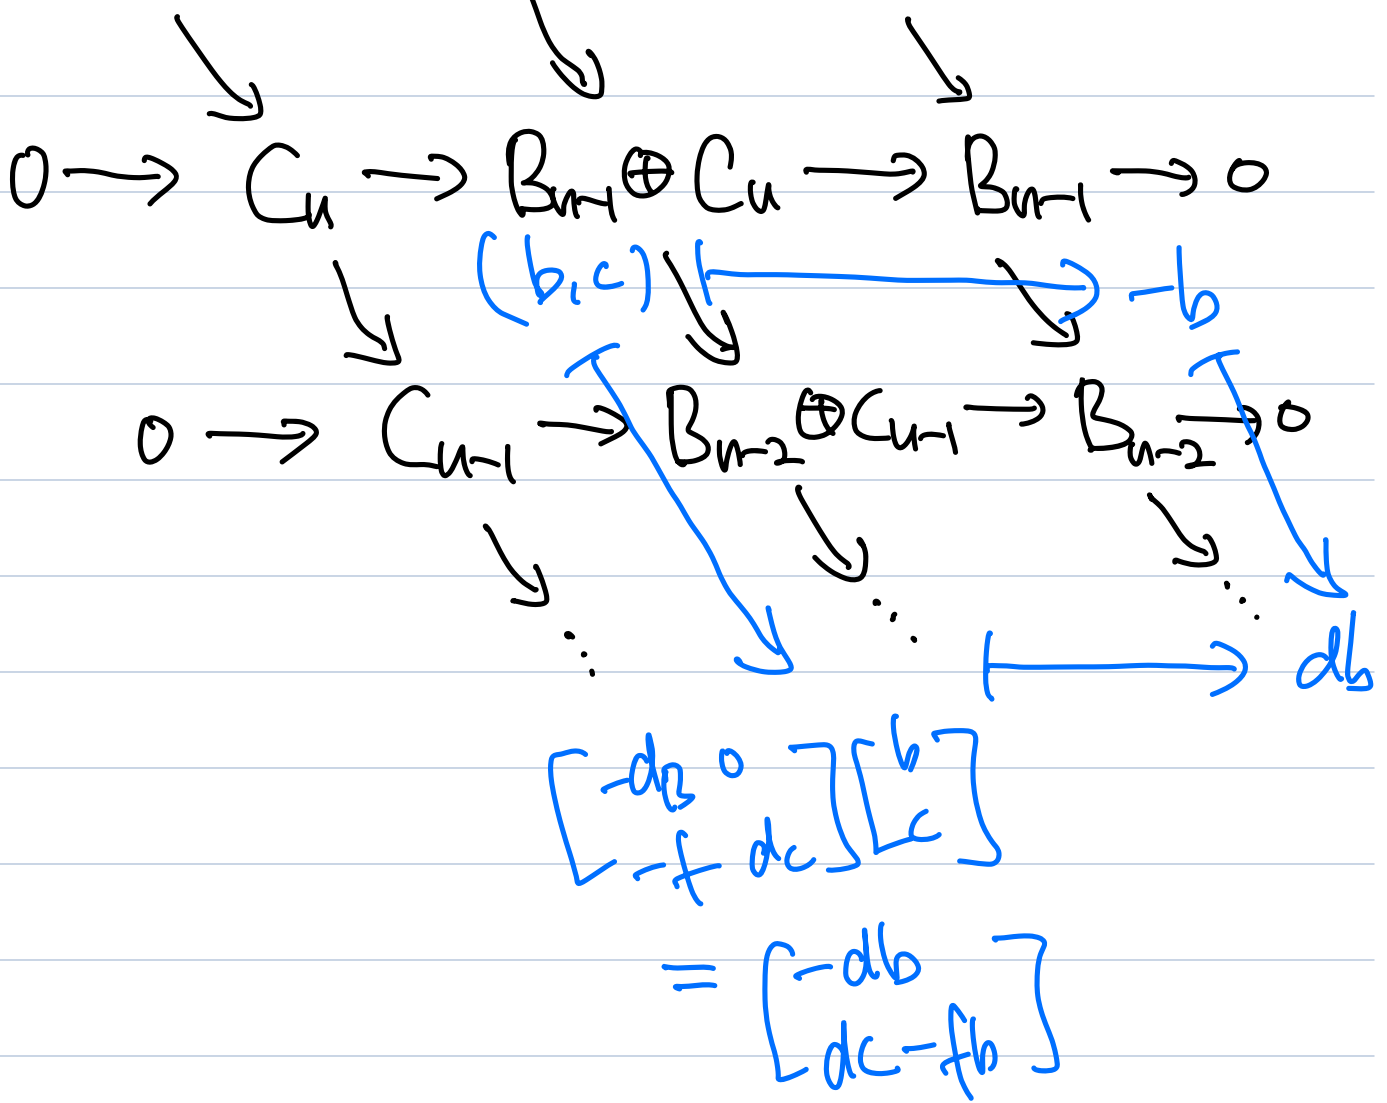 0 → Cₙ → Bₙ₋₁ ⊕ Cₙ → Bₙ₋₁ → 0
(b, c) ↦ -b
0 → Cₙ₋₁ → Bₙ₋₂ ⊕ Cₙ₋₁ → Bₙ₋₂ → 0
⋱ ⋱ ⋱
↦ db
[-d_B 0; -f d_C] [b; c]
= [-db; dc - fb]